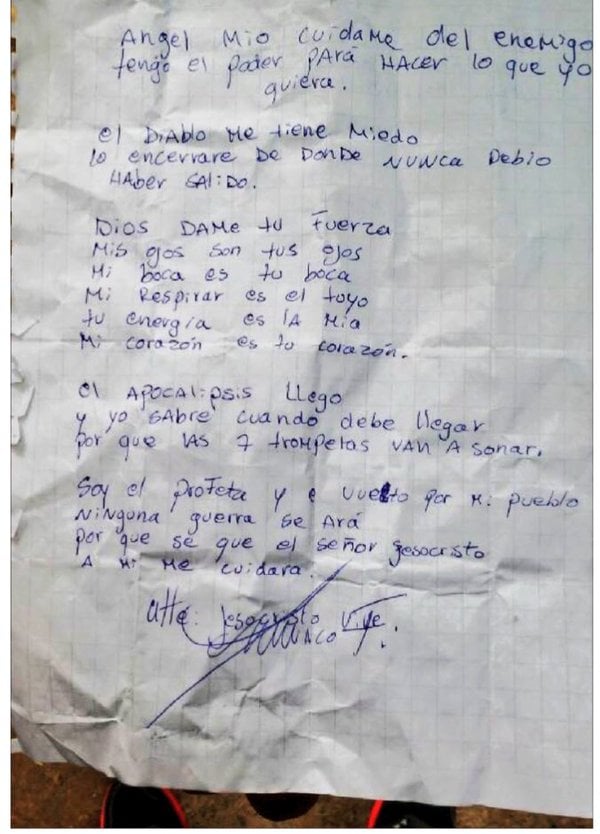 Angel Mio cuidame del enemigo
tengo el poder PARÁ HACER lo que yo
quiera.
el DiAblo Me tiene Miedo
lo encerrare De DonDe NUNCA Debio
HAber SAliDo.
Dios DAMe tu Fuerza
Mis ojos son tus ojos
Mi boca es tu boca
Mi Respirar es el tuyo
tu energía es lA MiA
Mi corazón es tu corazón.
el APOCAlipsis llego
y yo SAbre cuando debe llegar
por que lAS 7 troMpetas VAN A sonar.
Soy el profeta y e vuelto por Mi pueblo
NiNguNa guerra Se Ará
por que se que el señor Jesocristo
A Mi Me cuidara.
Atte: Jesocristo Vive.